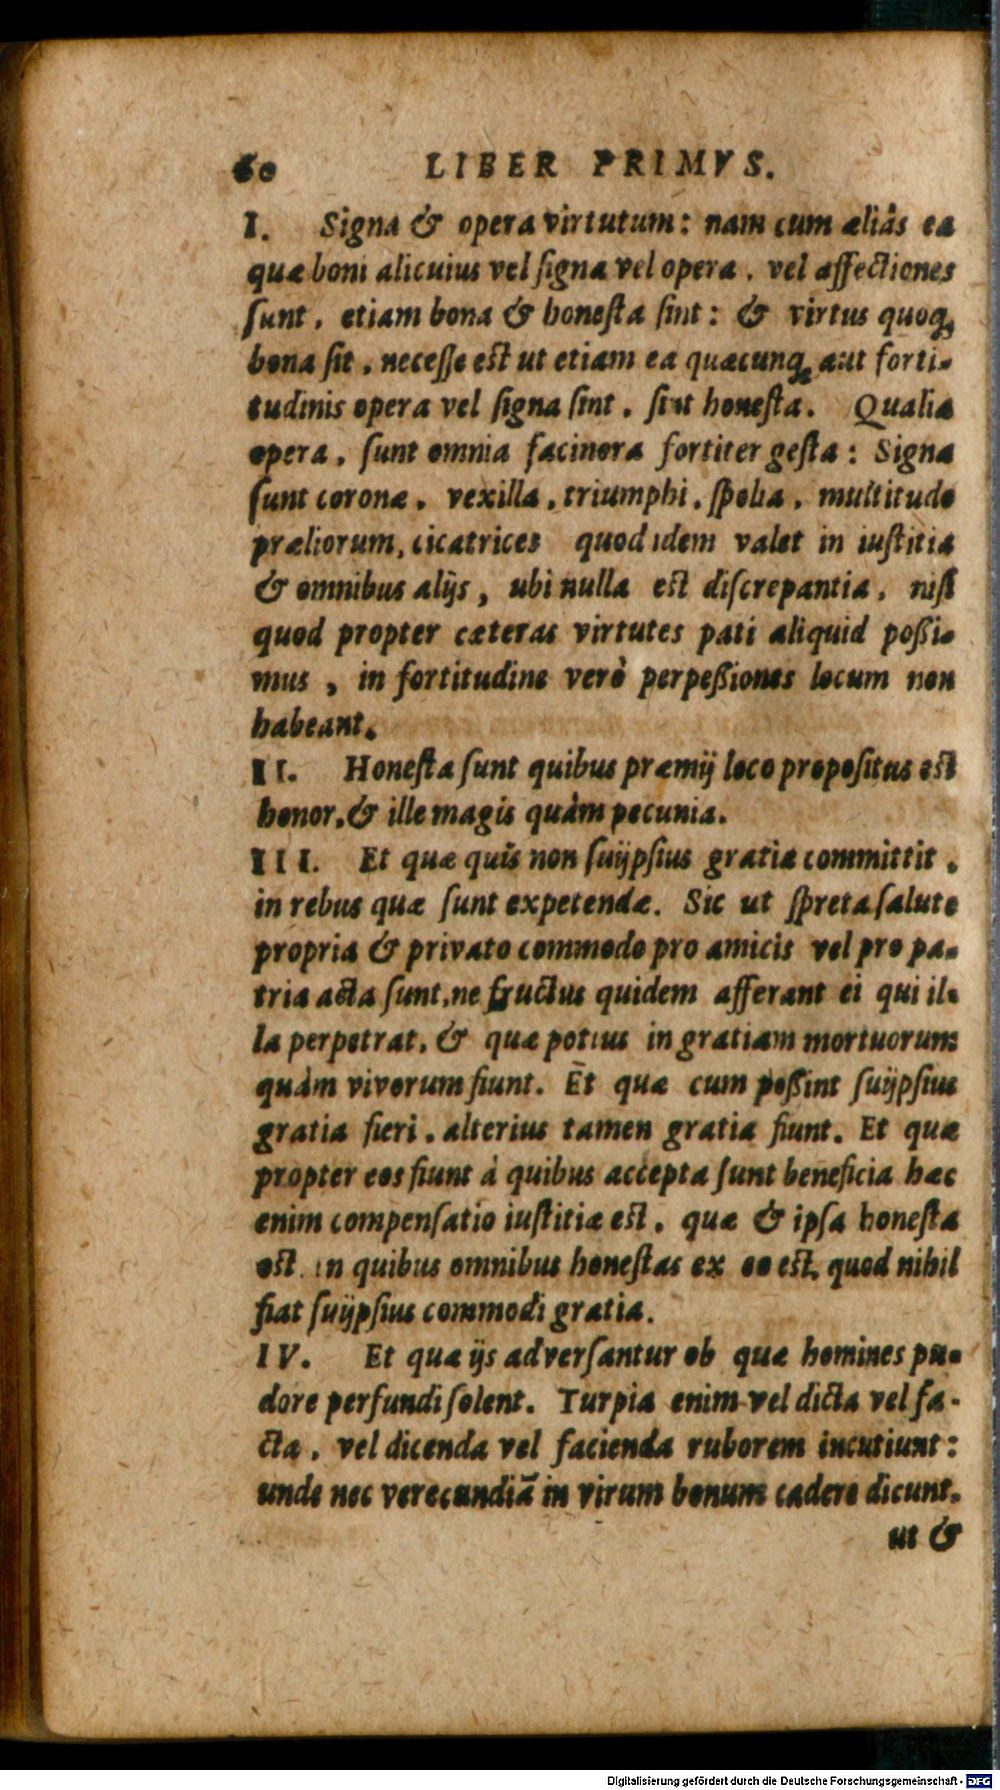 60 LIBER PRIMVS.
I. Signa & opera virtutum: nam cum aliâs ea
quæ boni alicuius vel signa vel opera, vel affectiones
sunt, etiam bona & honesta sint: & virtus quoq;
bona sit, necesse est ut etiam ea quæcunq; aut forti-
tudinis opera vel signa sint, sint honesta. Qualia
opera, sunt omnia facinora fortiter gesta: Signa
sunt coronæ, vexilla, triumphi, spolia, multitudo
præliorum, cicatrices quod idem valet in iustitia
& omnibus alijs, ubi nulla est discrepantia, nisi
quod propter cæteras virtutes pati aliquid possi-
mus, in fortitudine verò perpessiones locum non
habeant.
II. Honesta sunt quibus præmij loco propositus est
honor, & ille magis quàm pecunia.
III. Et quæ quis non suijpsius gratia committit,
in rebus quæ sunt expetendæ. Sic ut spreta salute
propria & privato commodo pro amicis vel pro pa-
tria acta sunt, ne fructus quidem afferant ei qui il-
la perpetrat, & quæ potius in gratiam mortuorum
quàm vivorum fiunt. Et quæ cum possint suijpsius
gratia fieri, alterius tamen gratia fiunt. Et quæ
propter eos fiunt à quibus accepta sunt beneficia hæc
enim compensatio iustitiæ est, quæ & ipsa honesta
est. in quibus omnibus honestas ex eo est, quod nihil
fiat suijpsius commodi gratia.
IV. Et quæ ijs adversantur ob quæ homines pu-
dore perfundi solent. Turpia enim vel dicta vel fa-
cta, vel dicenda vel facienda ruborem incutiunt:
unde nec verecundiā in virum bonum cadere dicunt,
ut &
Digitalisierung gefördert durch die Deutsche Forschungsgemeinschaft - DFG